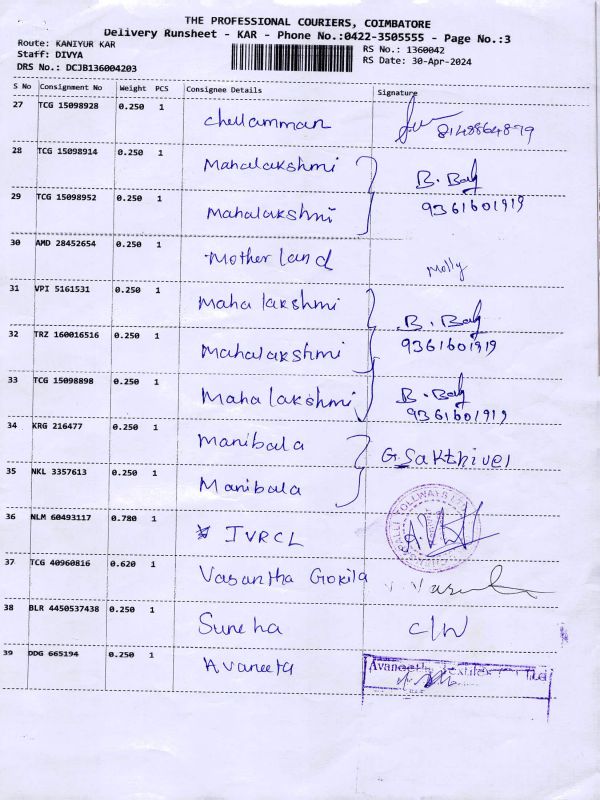 THE PROFESSIONAL COURIERS, COIMBATORE
Delivery Runsheet - KAR - Phone No.:0422-3505555 - Page No.:3
Route: KANIYUR KAR
Staff: DIVYA
DRS No.: DCJB136004203
RS No.: 1360042
RS Date: 30-Apr-2024
S No Consignment No Weight PCS Consignee Details Signature
27 TCG 15098928 0.250 1 chellamman 8148864879
28 TCG 15098914 0.250 1 Mahalakshmi B. Bag
29 TCG 15098952 0.250 1 Mahalakshmi 9361601919
30 AMD 28452654 0.250 1 Mother land Molly
31 VPI 5161531 0.250 1 Maha lakshmi B. Bag
32 TRZ 160016516 0.250 1 Mahalakshmi 9361601919
33 TCG 15098898 0.250 1 Maha lakshmi B. Bag
9361601919
34 KRG 216477 0.250 1 Manibala G. Sakthivel
35 NKL 3357613 0.250 1 Manibala
36 NLM 60493117 0.780 1 IVRCL
37 TCG 40960816 0.620 1 Vasantha Gokila
38 BLR 4450537438 0.250 1 Suneha C/W
39 DDG 665194 0.250 1 Avaneeta